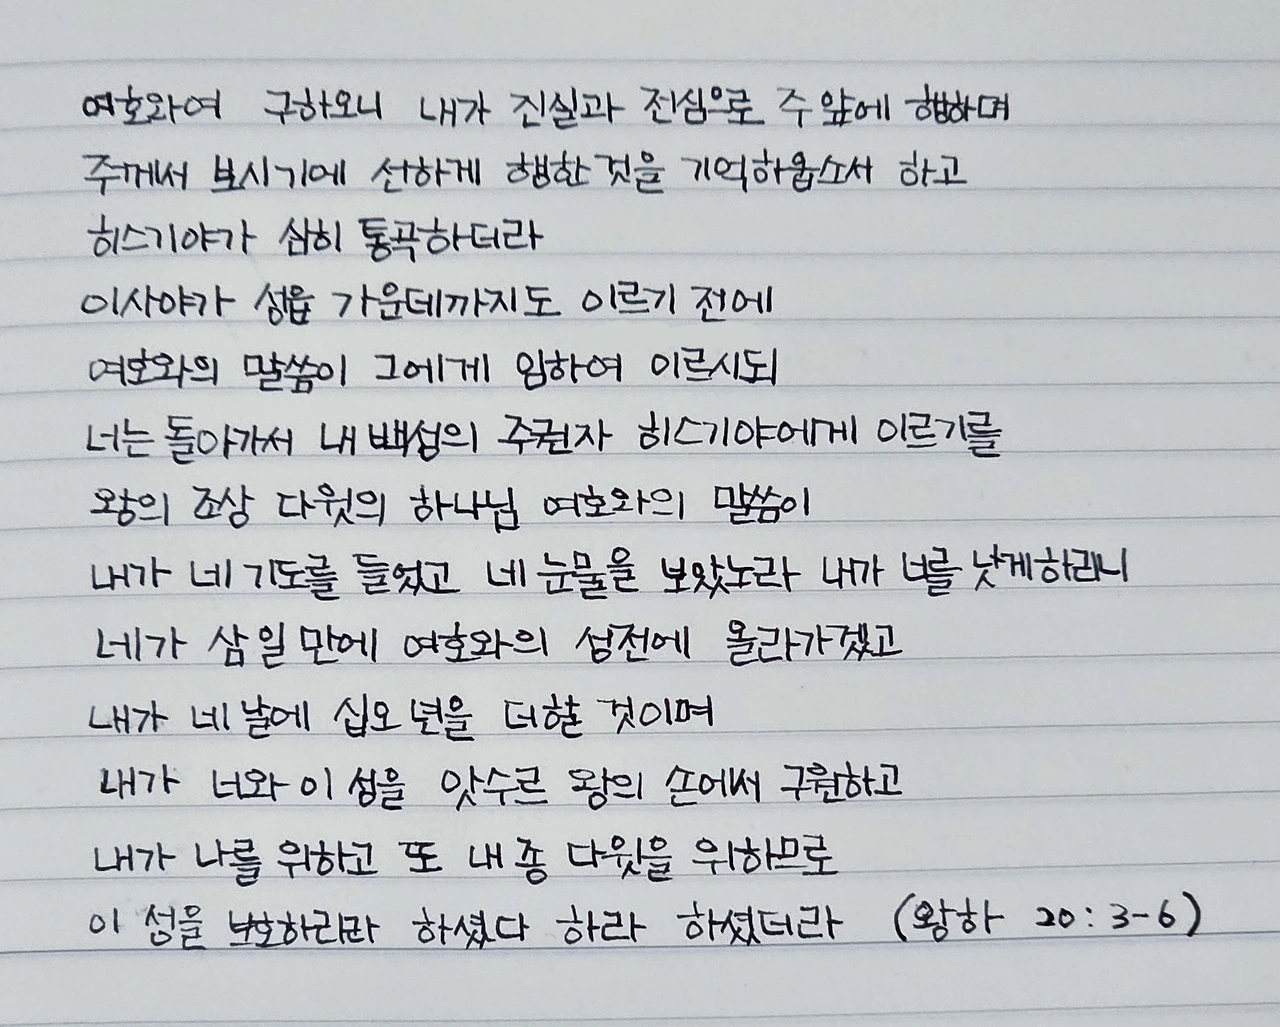 여호와여 구하오니 내가 진실과 전심으로 주 앞에 행하며
주께서 보시기에 선하게 행한 것을 기억하옵소서 하고
히스기야가 심히 통곡하더라
이사야가 성읍 가운데까지도 이르기 전에
여호와의 말씀이 그에게 임하여 이르시되
너는 돌아가서 내 백성의 주권자 히스기야에게 이르기를
왕의 조상 다윗의 하나님 여호와의 말씀이
내가 네 기도를 들었고 네 눈물을 보았노라 내가 너를 낫게하리니
네가 삼 일 만에 여호와의 성전에 올라가겠고
내가 네 날에 십오 년을 더할 것이며
내가 너와 이 성을 앗수르 왕의 손에서 구원하고
내가 나를 위하고 또 내 종 다윗을 위하므로
이 성을 보호하리라 하셨다 하라 하셨더라 (왕하 20:3-6)